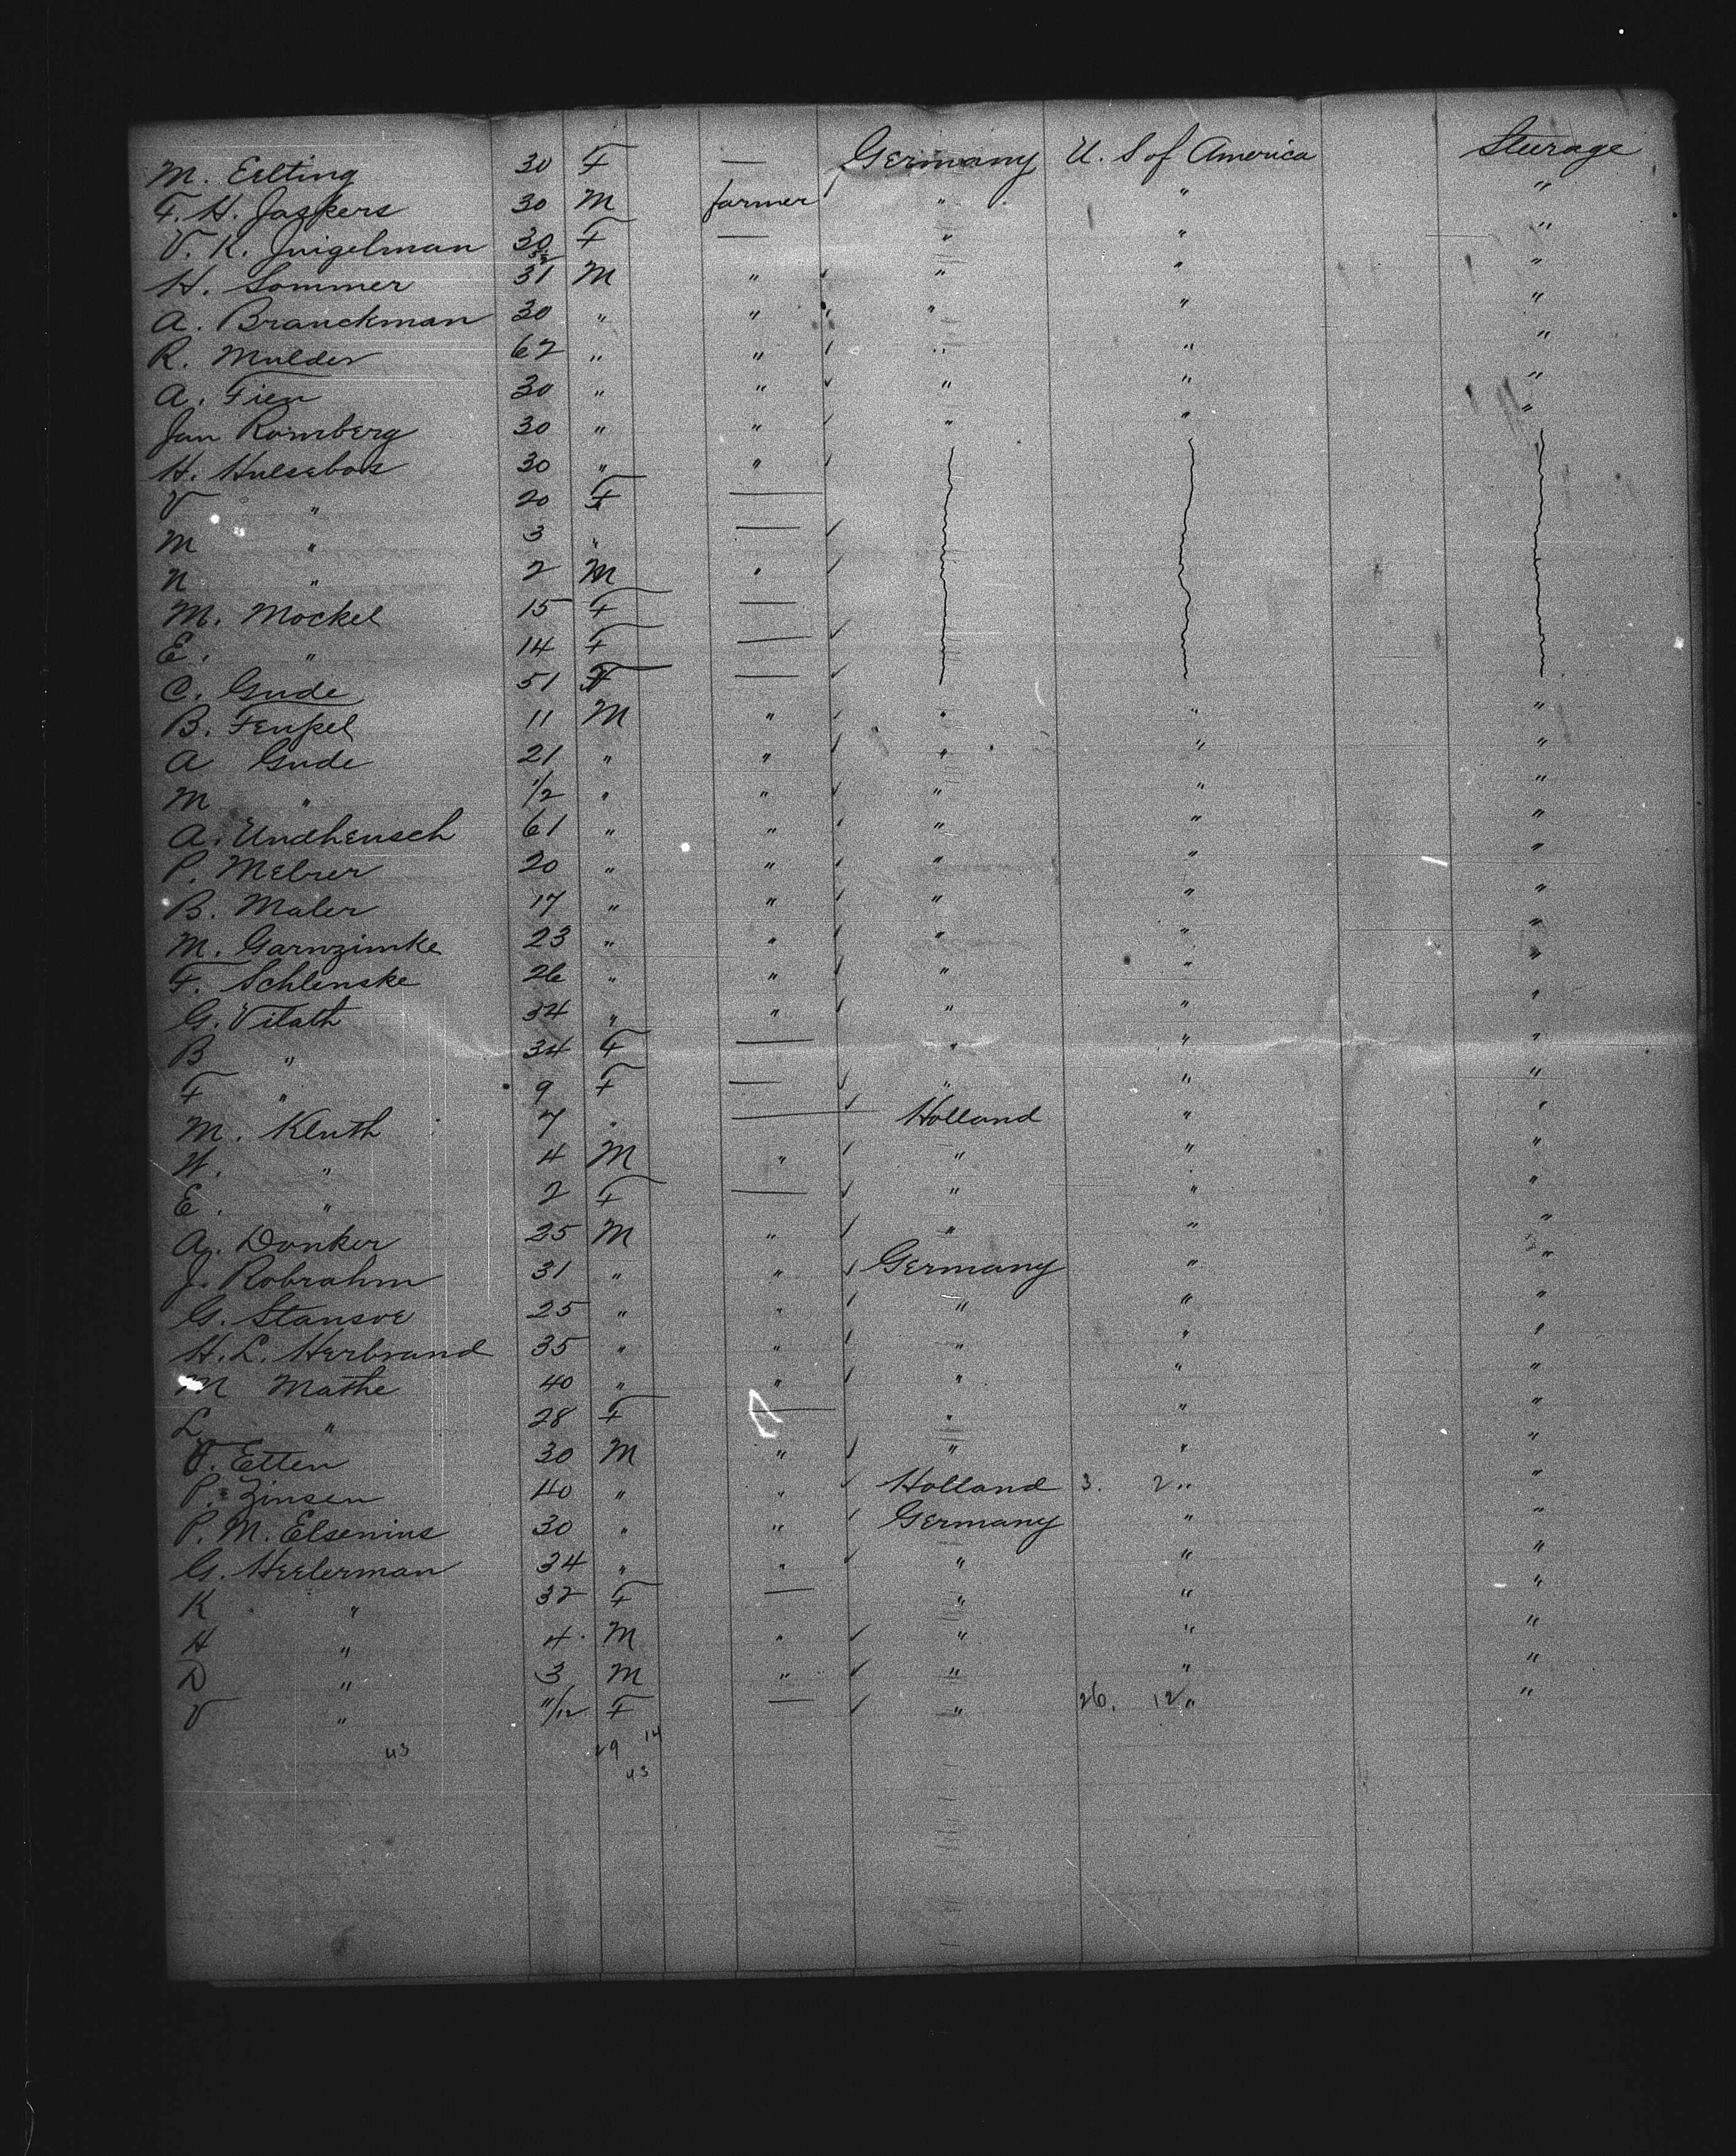 M. Eelting 30 F — Germany U. S of America Steerage
F. H. Jaskers 30 M farmer " " "
V. K. Juigelman 30 F — " " "
H. Sommer 31 M " " " "
A. Branckman 30 " " " " "
R. Mulder 62 " " " " "
A. Fien 30 " " " " "
Jan Romberg 30 " " " " "
H. Hulsebos 30 " "
V " 20 F —
M " 3 " —
N " 2 M "
M. Mockel 15 F —
E. " 14 F —
C. Gude 51 F —
B. Fenkel 11 M " " " "
A Gude 21 " " " " "
M " 1/2 " " " " "
A. Undheusch 61 " " " " "
P. Melrer 20 " " " " "
B. Maler 17 " " " " "
M. Garnzimke 23 " " " " "
F. Schlenske 26 " " " " "
G. Vitath 34 " " " " "
B " 34 F — " " "
F " 9 F — " " "
M. Kluth 7 " — Holland " "
W. " 4 M " " " "
E. " 2 F — " " "
A. Donker 25 M " " " "
J. Robrahm 31 " " Germany " "
G. Stansve 25 " " " " "
H. L. Herbrand 35 " " " " "
M Mathe 40 " " " " "
L " 28 F — " " "
F. Etten 30 M " " " "
P. Zinsen 40 " " Holland 3. 2 " "
P. M. Elsenius 30 " " Germany " "
G. Heelerman 34 " " " " "
K " 32 F — " " "
H " 4 M " " " "
D " 3 M " " " "
V " 11/12 F — " 26. 12 " "
43 29 14
43